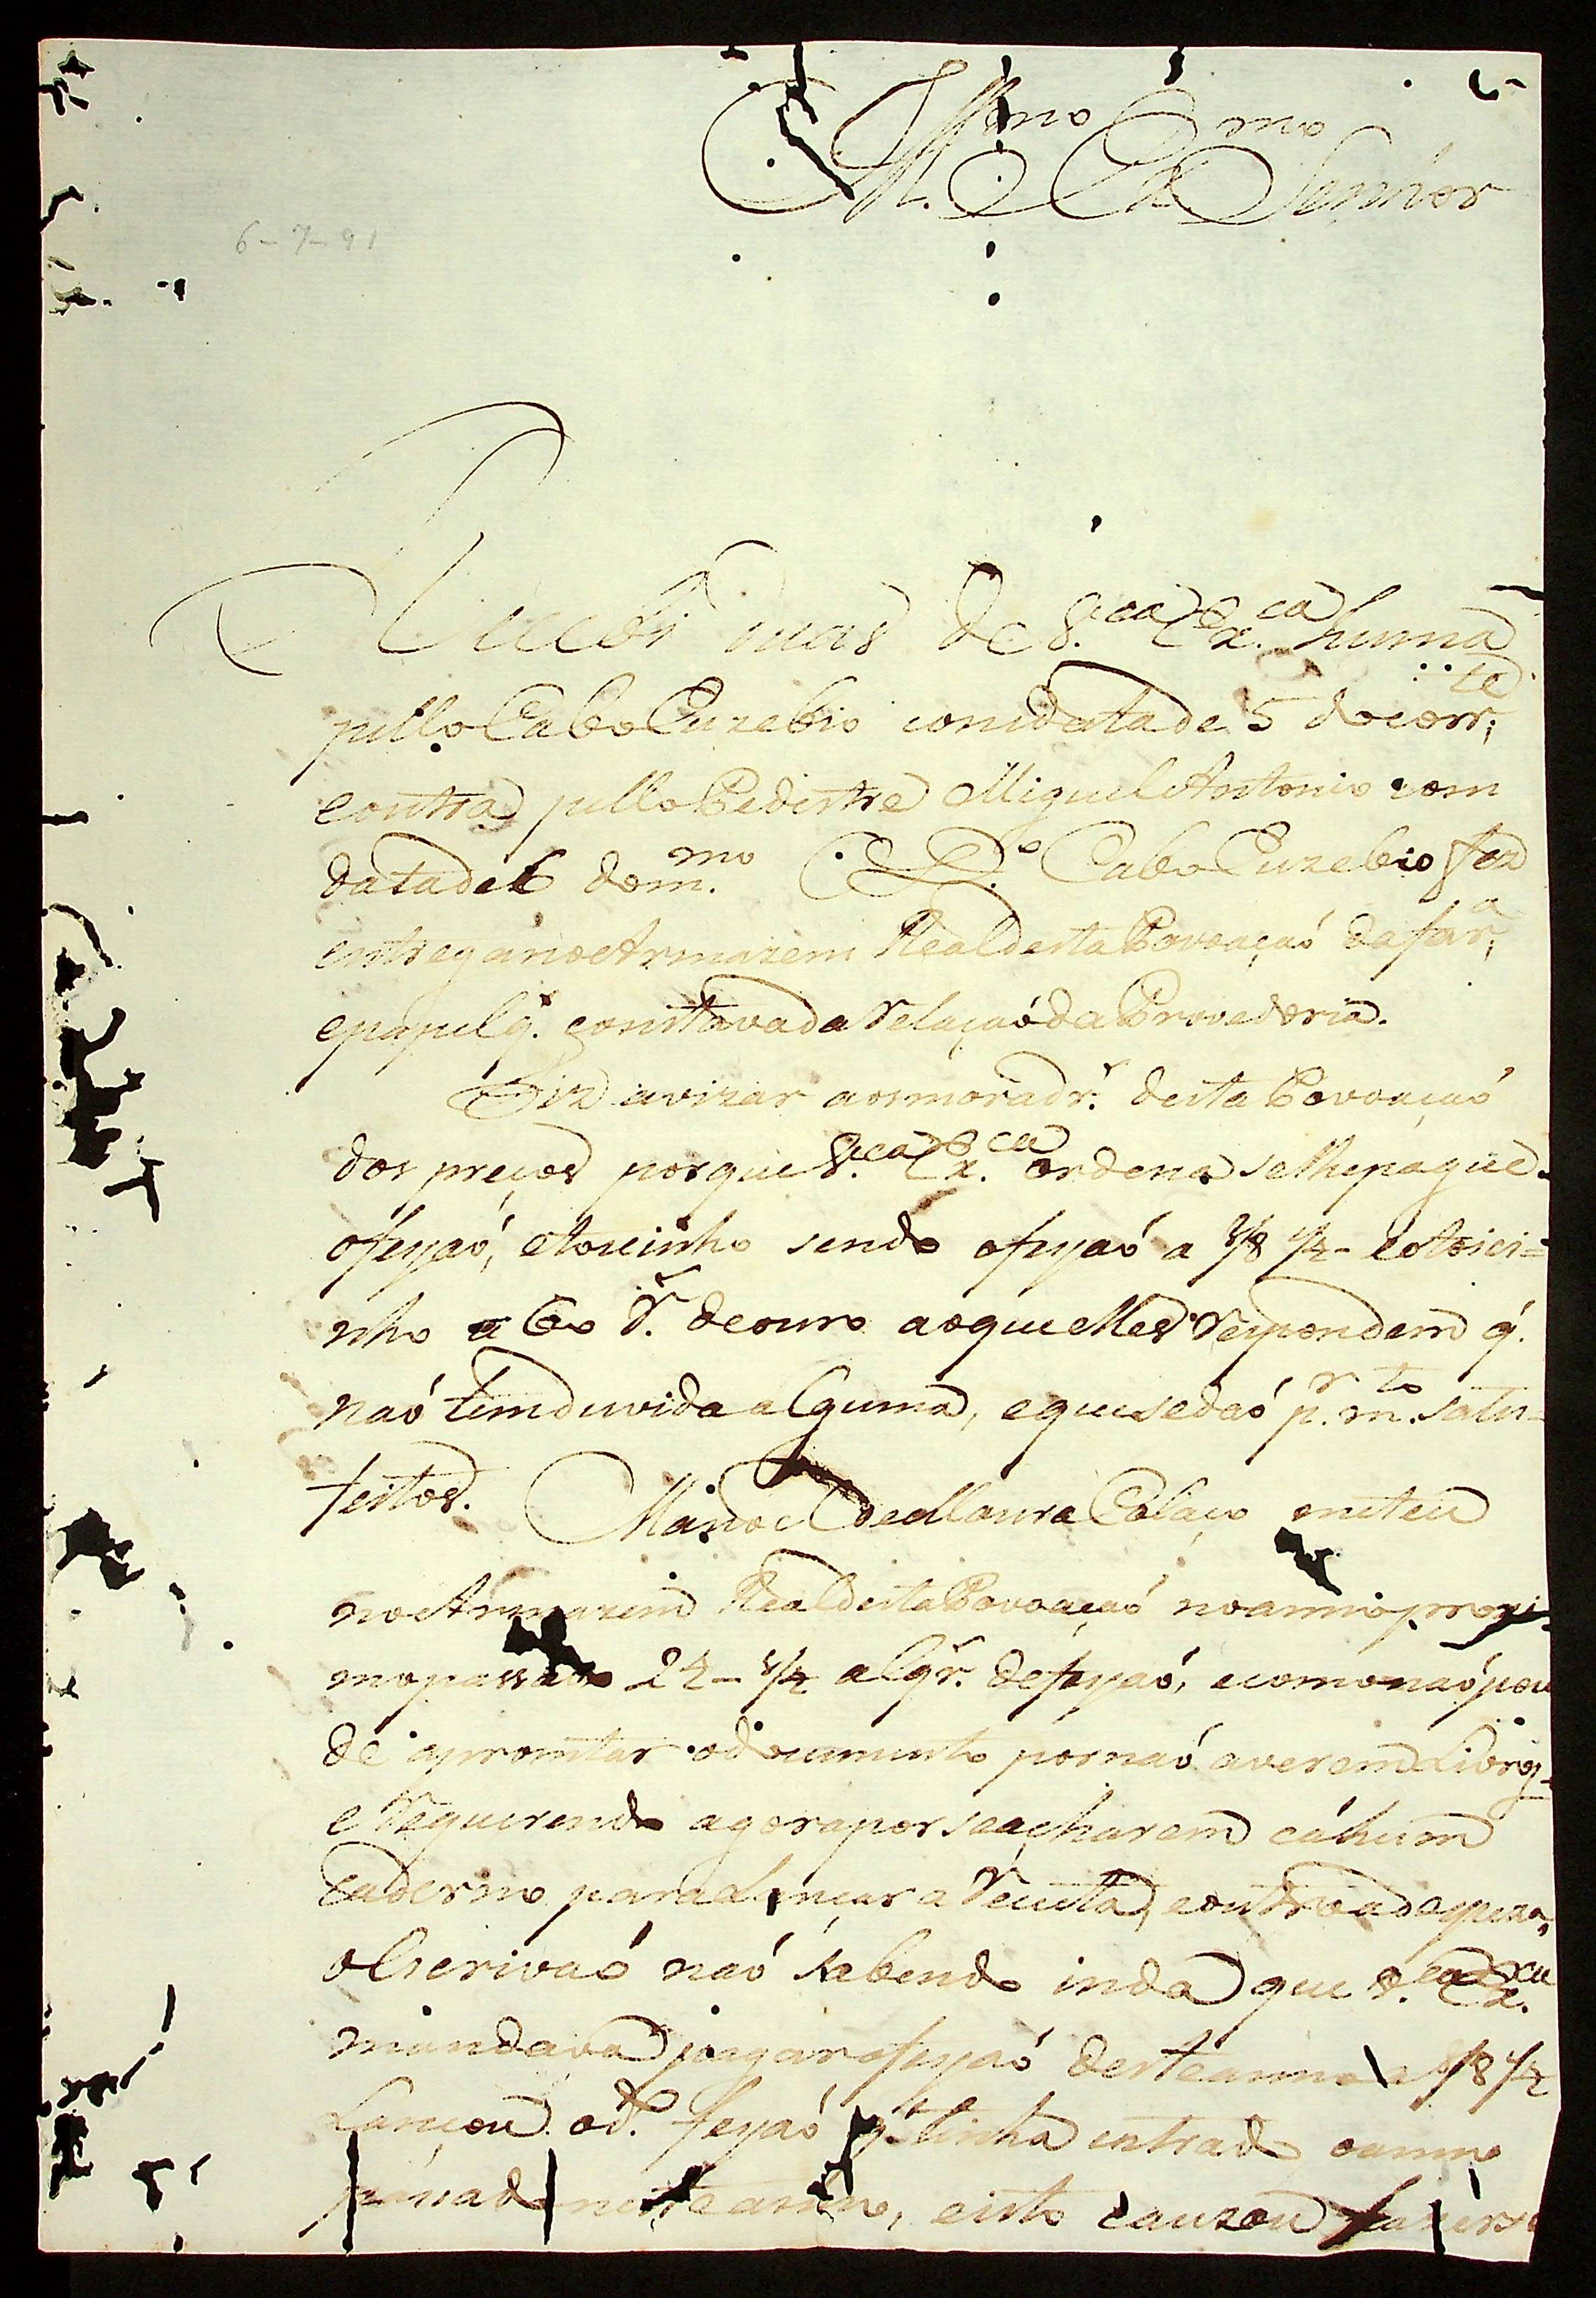 Illmo Exmo
Il. Ex Senhor
6-7-91
Recebi duas de V.ca Ex.ca huma
pello Cabo Euzebio com data de 5 do corr.te
e outra pello Pedestre Miguel Antonio com
data de 6 do m.mo O D.o Cabo Euzebio fez
entrega no Armazem Real desta Povoaçaó da far.a
e papel q. constava da Relaçaó da Provedoria.
Fiz avizar aos moradr.s desta Povoaçaó
dos preços porque V.ca Ex.ca ordena se lhe pague
o feyaó, e toucinho sendo o feyaó a 3/8 1/2 - e o toici=
nho a 60 r. de ouro ao que elles Respondem q.
naó tem duvida alguma, e que se daó p.r m.to satis=
feitos. Manoel de Moura Colaço meteu
no Armazem Real desta Povoaçaó no anno proxi-
mo passado 24 - 1/2 alqr. de feyaó, e como naó pou
de aprontar o documento por naó averem Livros
e Requerendo agora por se acharem cá hum
caderno para Lançar a Receita, e outro a despeza,
o Escrivaó naó sabendo inda que V.ca Ex.ca
mandava pagar o feyaó deste anno a 3/8 1/2
Lançou o d.o feyaó q. tinha entrado o anno
passado neste anno, e isto cauzou fazerse